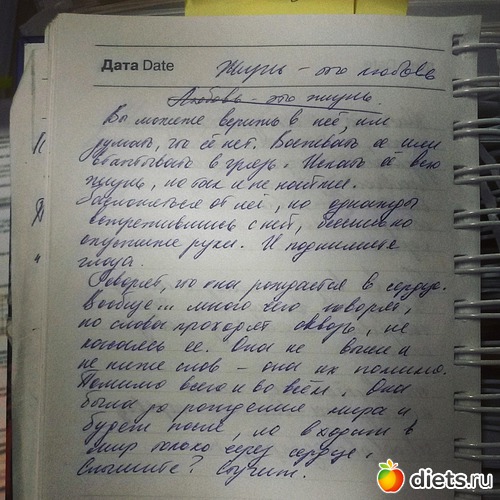 Дата Date
Жизнь – это любовь
Любовь – это жизнь.
Вы можете верить в неё, или
думать, что её нет. Воспевать ее или
втаптывать в грязь. Искать её всю
жизнь, но так и не найти.
от неё, но однажды
встретившись с ней, бессильно
опустите руки. И поднимите
глаза.
Говорят, что она рождается в сердце.
Вообще... много чего говорят,
но слова проходят сквозь, не
касаясь ее. Она не выше и
не ниже слов – она их помимо.
Помимо всего и во всём. Она
была до рождения мира и
будет после, но входит в
мир только через сердце.
Слышите? Стучит.
diets.ru